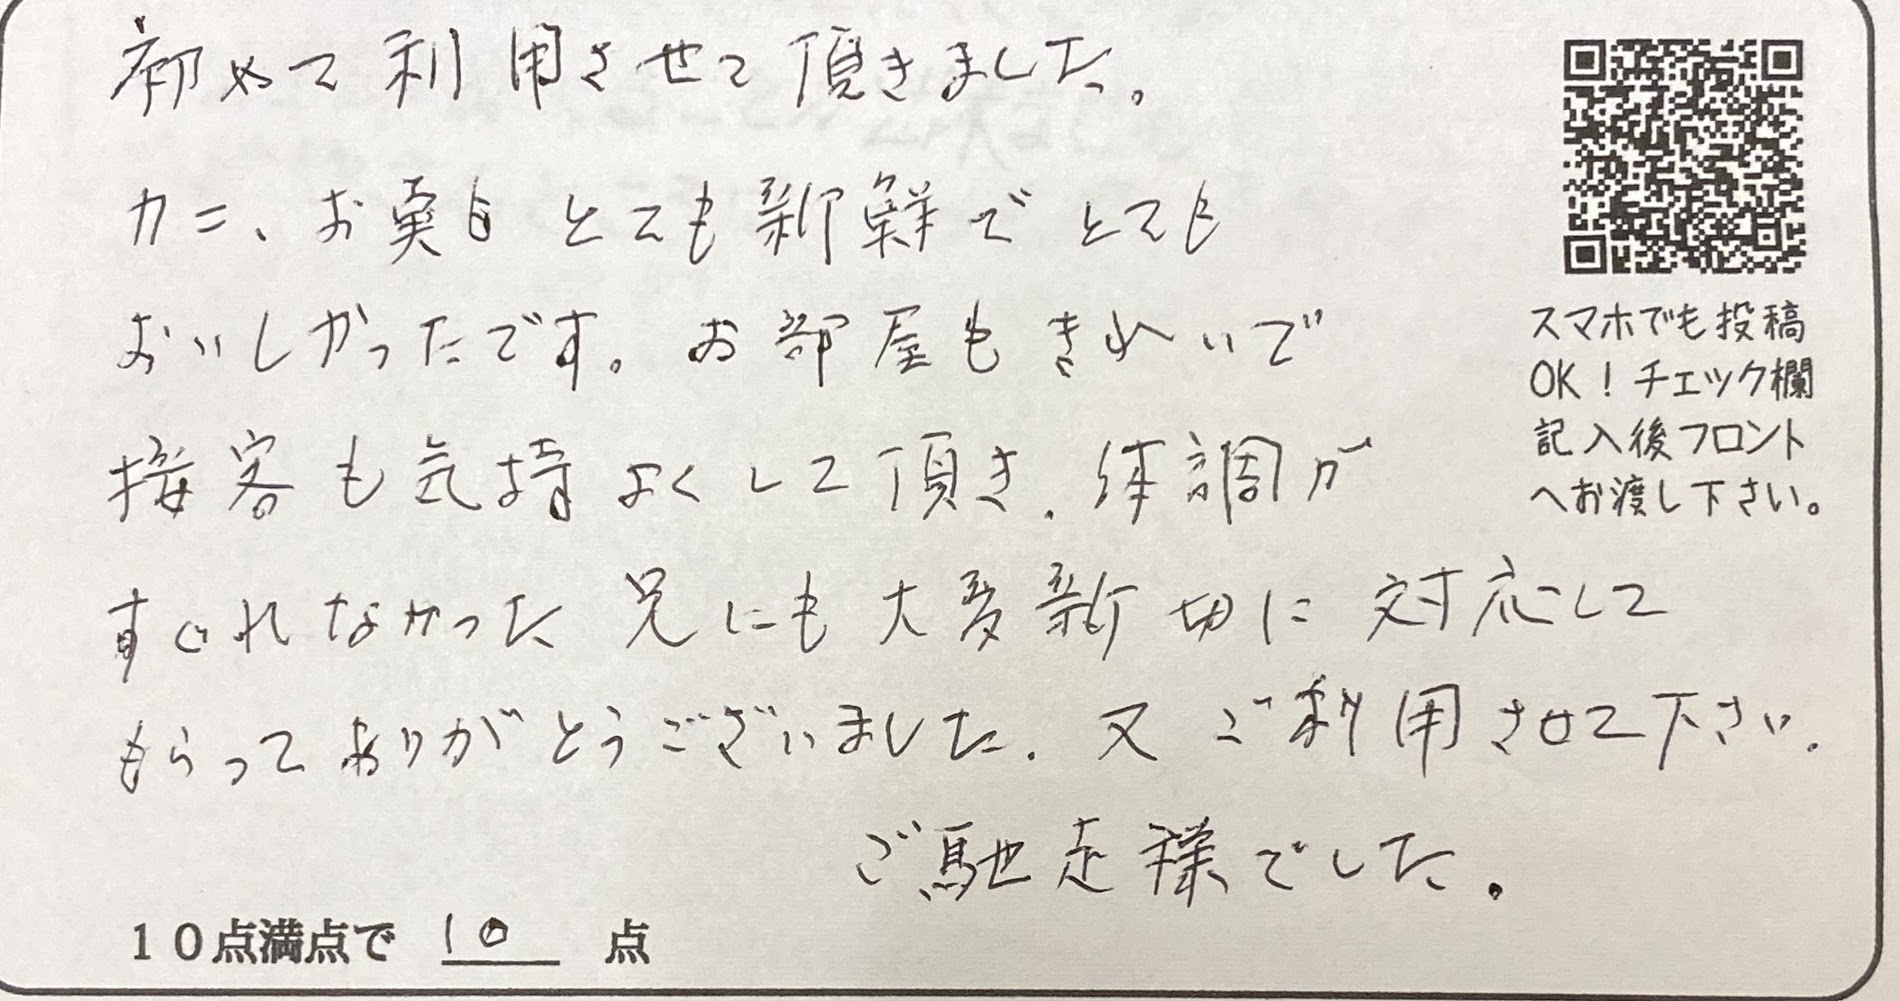 初めて利用させて頂きました。
カニ、お魚もとても新鮮でとても
おいしかったです。お部屋もきれいで
接客も気持よくして頂き、体調が
すぐれなかった兄にも大変親切に対応して
もらってありがとうございました。又ご利用させて下さい。
ご馳走様でした。
10点満点で 10 点
スマホでも投稿
OK！チェック欄
記入後フロント
へお渡し下さい。